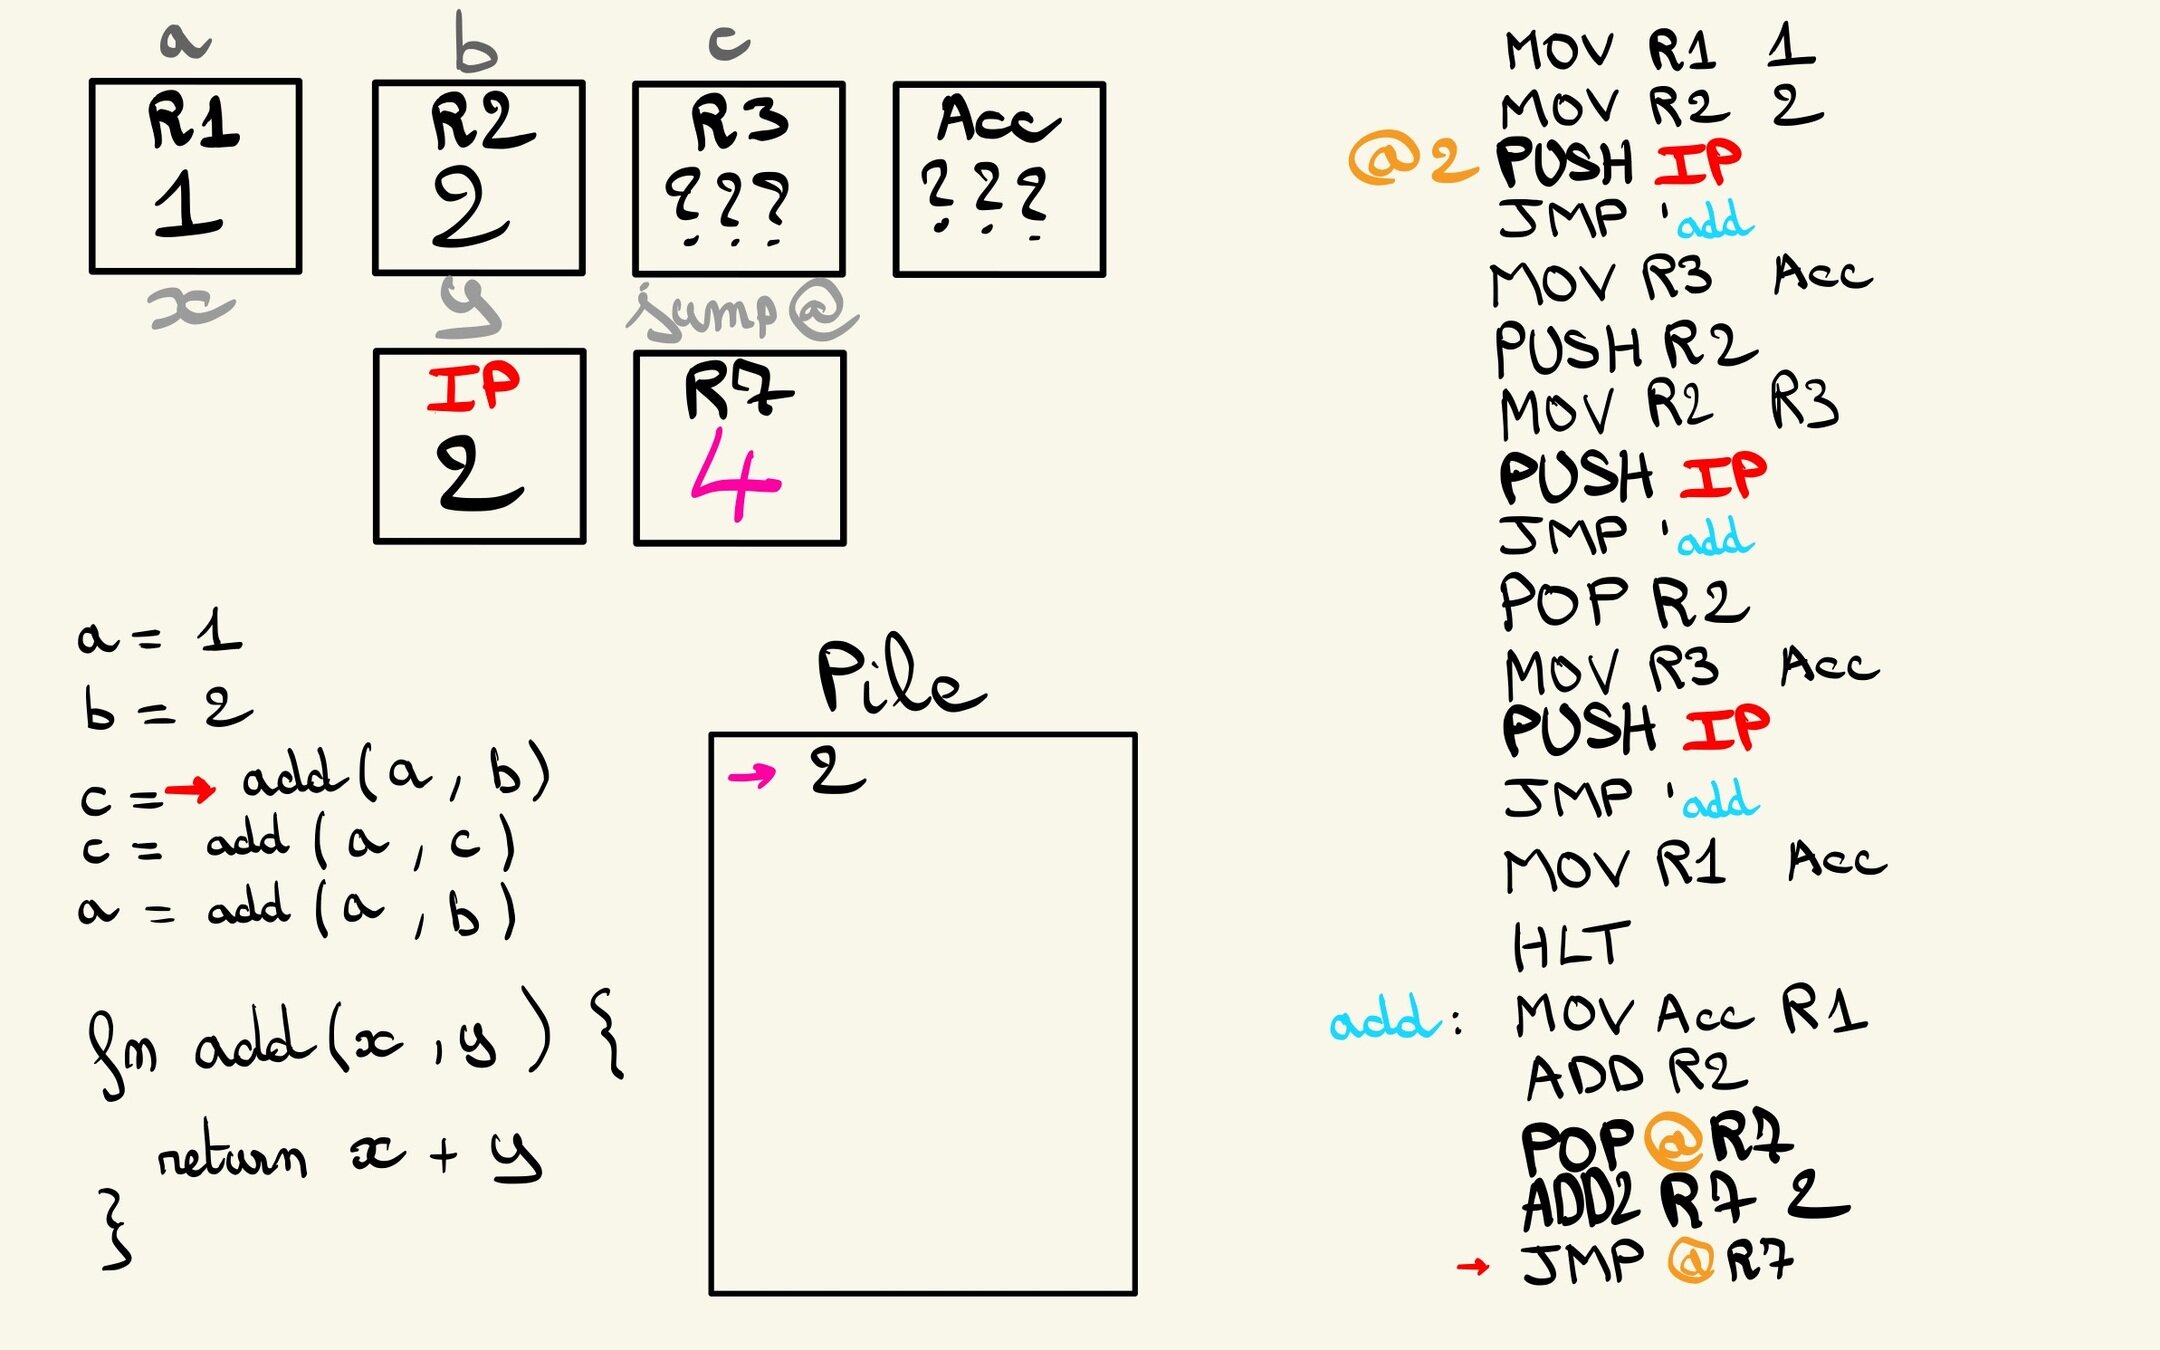 a b c
R1 R2 R3 Acc
1 2 ??? ???
x y jump@
IP R7
2 4
a = 1
b = 2
c = → add(a, b)
c = add(a, c)
a = add(a, b)
fn add(x, y) {
return x + y
}
Pile
→ 2
MOV R1 1
MOV R2 2
@2 PUSH IP
JMP 'add
MOV R3 Acc
PUSH R2
MOV R2 R3
PUSH IP
JMP 'add
POP R2
MOV R3 Acc
PUSH IP
JMP 'add
MOV R1 Acc
HLT
add: MOV Acc R1
ADD R2
POP @R7
ADD2 R7 2
→ JMP @R7